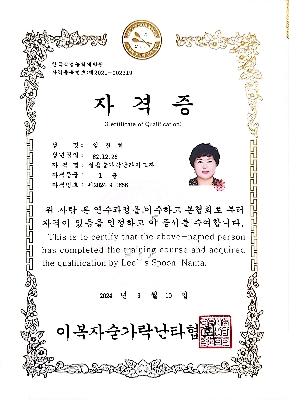 자격증
(Certificate of Qualification)
성 명 :
생년월일 : 62.12.25
자 격 명 :
자격등급 : 1 급
자격번호 :
위 사람은 연수과정을 이수하고 본협회로 부터
자격이 있음을 인정하고 이 증서를 수여합니다.
This is to certify that the above-named person
has completed the training course and acquired
the qualification by Lee's Spoon Nanta.
2024 년 9 월 10 일
이복자숟가락난타협회